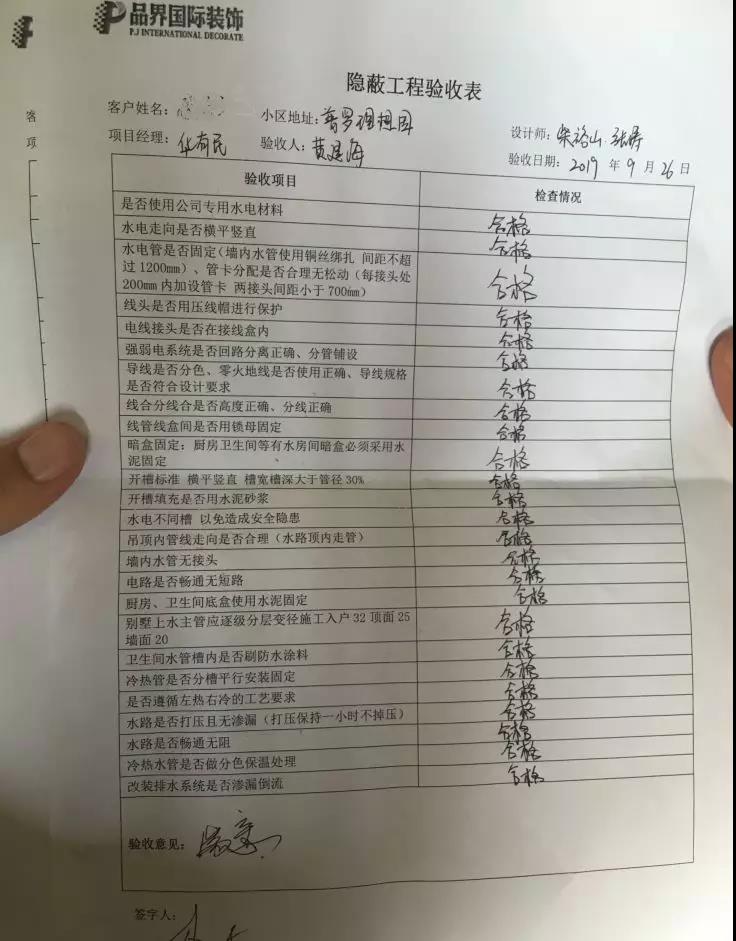 品界国际装饰
P.J INTERNATIONAL DECORATE
隐蔽工程验收表
客
项
客户姓名: 小区地址: 普罗理想国 设计师: 张
项目经理: 华有民 验收人: 黄建海 验收日期: 2019 年 9 月 26 日
验收项目 检查情况
是否使用公司专用水电材料 合格
水电走向是否横平竖直 合格
水电管是否固定(墙内水管使用铜丝绑扎 间距不超
过1200mm)、管卡分配是否合理无松动(每接头处
200mm内加设管卡 两接头间距小于700mm) 合格
线头是否用压线帽进行保护 合格
电线接头是否在接线盒内 合格
强弱电系统是否回路分离正确、分管铺设 合格
导线是否分色、零火地线是否使用正确、导线规格
是否符合设计要求 合格
线合分线合是否高度正确、分线正确 合格
线管线盒间是否用锁母固定 合格
暗盒固定: 厨房卫生间等有水房间暗盒必须采用水
泥固定 合格
开槽标准 横平竖直 槽宽槽深大于管径30% 合格
开槽填充是否用水泥砂浆 合格
水电不同槽 以免造成安全隐患 合格
吊顶内管线走向是否合理(水路顶内走管) 合格
墙内水管无接头 合格
电路是否畅通无短路 合格
厨房、卫生间底盒使用水泥固定 合格
别墅上水主管应逐级分层变径施工入户32顶面25
墙面20 合格
卫生间水管槽内是否刷防水涂料 合格
冷热管是否分槽平行安装固定 合格
是否遵循左热右冷的工艺要求 合格
水路是否打压且无渗漏(打压保持一小时不掉压) 合格
水路是否畅通无阻 合格
冷热水管是否做分色保温处理 合格
改装排水系统是否渗漏倒流 合格
验收意见:
签字人: